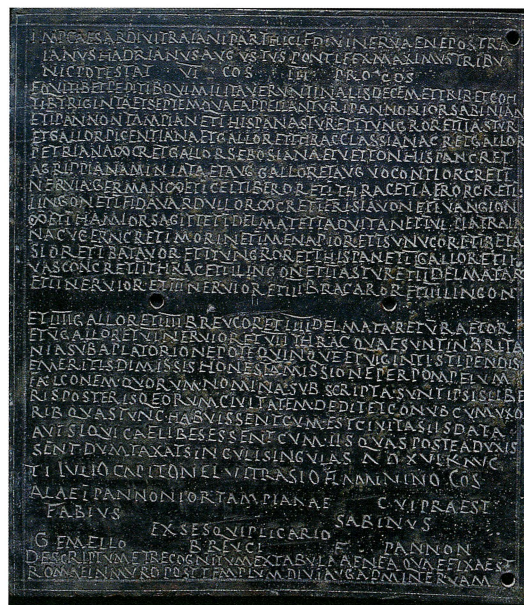 IMP CAESAR DIVI TRAIANI PARTHICI F DIVI NERVAE NEPOS TRA
IANVS HADRIANVS AVGVSTVS PONTIFEX MAXIMVS TRIBV
NIC POTESTAT VI COS III PRO COS
EQVITIB ET PEDITIB QVI MILITAVERVNT IN ALIS DECEM ET TRIB ET COH
TIB TRIGINTA ET SEPTEM QVAE APPELLANTVR I PANNONIOR SABINIAN
ET I PANNON TAMPIAN ET I HISPAN ASTVR ET I TVNGROR ET II ASTVR
ET GALLOR PICENTIANA ET GALLOR ET THRAC CLASSIANA C R ET GALLOR
PETRIANA ∞ C R ET GALLOR SEBOSIANA ET VETTON HISPAN C R ET
AGRIPPIANA MINIATA ET AVG GALLOR ET AVG VOCONTIOR C R ET I
NERVIA GERMAN ∞ ET I CELTIBEROR ET I THRAC ET I AFROR C R ET I
LINGON ET I FIDA VARDVLLOR ∞ C R ET I FRISIAVON ET I VANGION
∞ ET I HAMIOR SAGITT ET I DELMAT ET I AQVITAN ET I VLPIA TRAIA
NA CVGERN C R ET I MORIN ET I MENAPIOR ET I SVNVCOR ET I BETA
SIOR ET I BATAVOR ET I TVNGROR ET I HISPAN ET II GALLOR ET II
VASCON C R ET II THRAC ET II LINGON ET II ASTVR ET II DELMATAR
ET II NERVIOR ET III NERVIOR ET III BRACAROR ET III LINGON
ET IIII GALLOR ET IIII BREVCOR ET IIII DELMATAR ET V RAETOR
ET V GALLOR ET VI NERVIOR ET VII THRAC QVAE SVNT IN BRITAN
NIA SVB A PLATORIO NEPOTE QVINQVE ET VIGINTI STIPENDIS
EMERITIS DIMISSIS HONESTA MISSIONE PER POMPEIVM
FALCONEM QVORVM NOMINA SVBSCRIPTA SVNT IPSIS LIBE
RIS POSTERISQ EORVM CIVITATEM DEDIT ET CONVB CVM VXO
RIB QVAS TVNC HABVISSENT CVM EST CIVITAS IIS DATA
AVT SIQVI CAELIBES ESSENT CVM IIS QVAS POSTEA DVXIS
SENT DVMTAXAT SINGVLI SINGVLAS A D XVI K AVG
TI IVLIO CAPITONE L VITRASIO FLAMININO COS
ALAE I PANNONIOR TAMPIANAE C VI PRAEST
FABIVS SABINVS
EX SESQVIPLICARIO
GEMELLO BREVCI F PANNON
DESCRIPTVM ET RECOGNITVM EX TABVLA AENEA QVAE FIXA EST
ROMAE IN MVRO POST TEMPLVM DIVI AVG AD MINERVAM